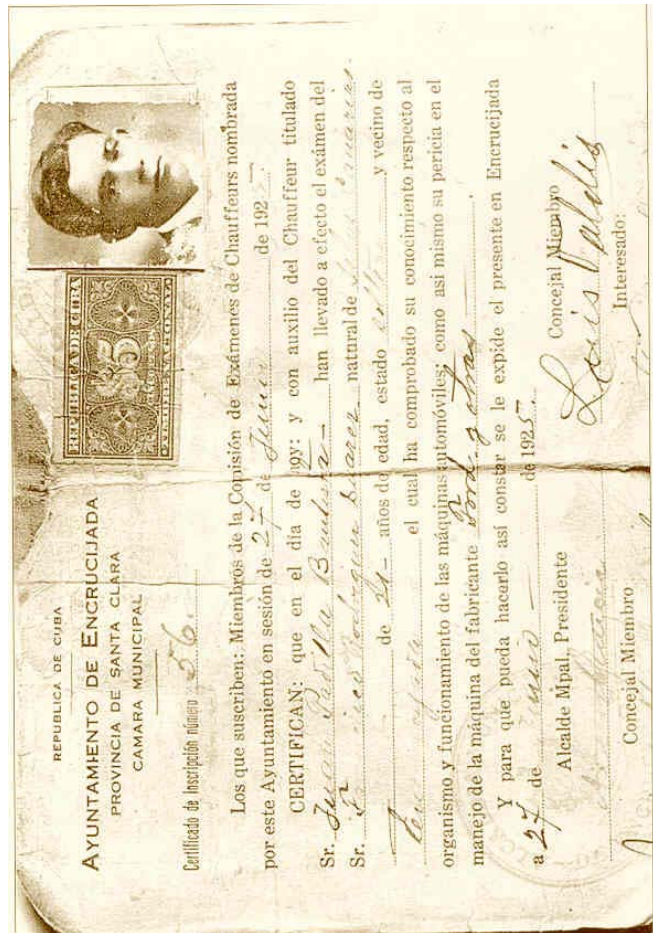 REPUBLICA DE CUBA
AYUNTAMIENTO DE ENCRUCIJADA
PROVINCIA DE SANTA CLARA
CAMARA MUNICIPAL
REPUBLICA DE CUBA
Certificado de Inscripción número 56.
Los que suscriben: Miembros de la Comisión de Exámenes de Chauffeurs nombrada
por este Ayuntamiento en sesión de 27 de Junio de 1925
CERTIFICAN: que en el día de hoy: y con auxilio del Chauffeur titulado
Sr. Juan Padilla han llevado a efecto el exámen del
Sr. Rodriguez Suarez natural de
de años de edad, estado y vecino de
el cual ha comprobado su conocimiento respecto al
organismo y funcionamiento de las máquinas automóviles; como asi mismo su pericia en el
manejo de la máquina del fabricante Ford y otras
Y para que pueda hacerlo así constar se le expide el presente en Encrucijada
a 27 de Junio de 1925.
Alcalde Mpal. Presidente
Concejal Miembro
Luis Valdis
Concejal Miembro
Interesado: